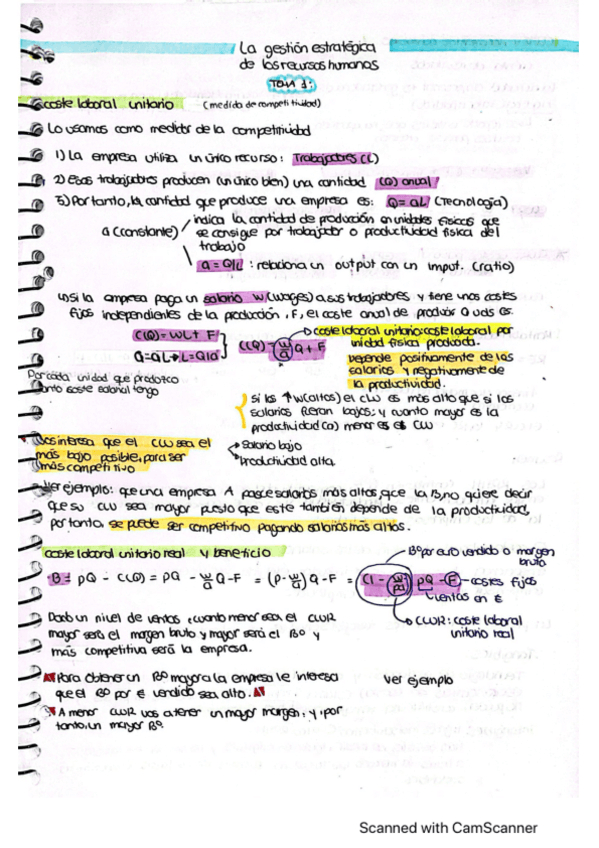 La gestión estratégica
de los recursos humanos
TEMA 1:
coste laboral unitario (medida de competitividad)
Lo usamos como medidor de la competitividad
1) La empresa utiliza un único recurso: Trabajadores (L)
2) Esos trabajadores producen (un único bien) una cantidad (Q) anual
3) Por tanto, la cantidad que produce una empresa es: Q=aL (Tecnología)
a (constante) indica la cantidad de producción en unidades físicas que
se consigue por trabajador o productividad física del
trabajo
a = Q/L : relaciona un output con un imput. (ratio)
4) Si la empresa paga un salario W (wages) a sus trabajadores y tiene unos costes
fijos independientes de la producción, F, el coste anual de producir Q uds es:
C(Q) = WL + F
Q=aL → L=Q/a
C(Q) = w/a Q + F
coste laboral unitario: coste laboral por
unidad física producida.
Depende positivamente de los
salarios y negativamente de
la productividad.
Por cada unidad que produzco
tanto coste salarial tengo
Si los ↑W (altos) el CLU es más alto que si los
salarios fueran bajos; y cuanto mayor es la
productividad (a) menor es el CLU
Nos interesa que el CLU sea el
más bajo posible, para ser
más competitivo
→ Salario bajo
→ Productividad alta.
Ver ejemplo: que una empresa A pague salarios más altos que la B, no quiere decir
que su CLU sea mayor puesto que este también depende de la productividad,
por tanto, se puede ser competitivo pagando salarios más altos.
coste laboral unitario real y beneficio
B = pQ - C(Q) = pQ - w/a Q - F = (p - w/a) Q - F = (1 - w/pa) pQ - F
Bº por euro vendido o margen
bruto
costes fijos
ventas en €
CLUR: coste laboral
unitario real
Dado un nivel de ventas, cuanto menor sea el CLUR
mayor será el margen bruto y mayor será el Bº y
más competitiva será la empresa.
Para obtener un Bº mayor a la empresa le interesa
que el Bº por € vendido sea alto.
ver ejemplo
A menor CLUR vas a tener un mayor margen, y por
tanto, un mayor Bº.
Scanned with CamScanner